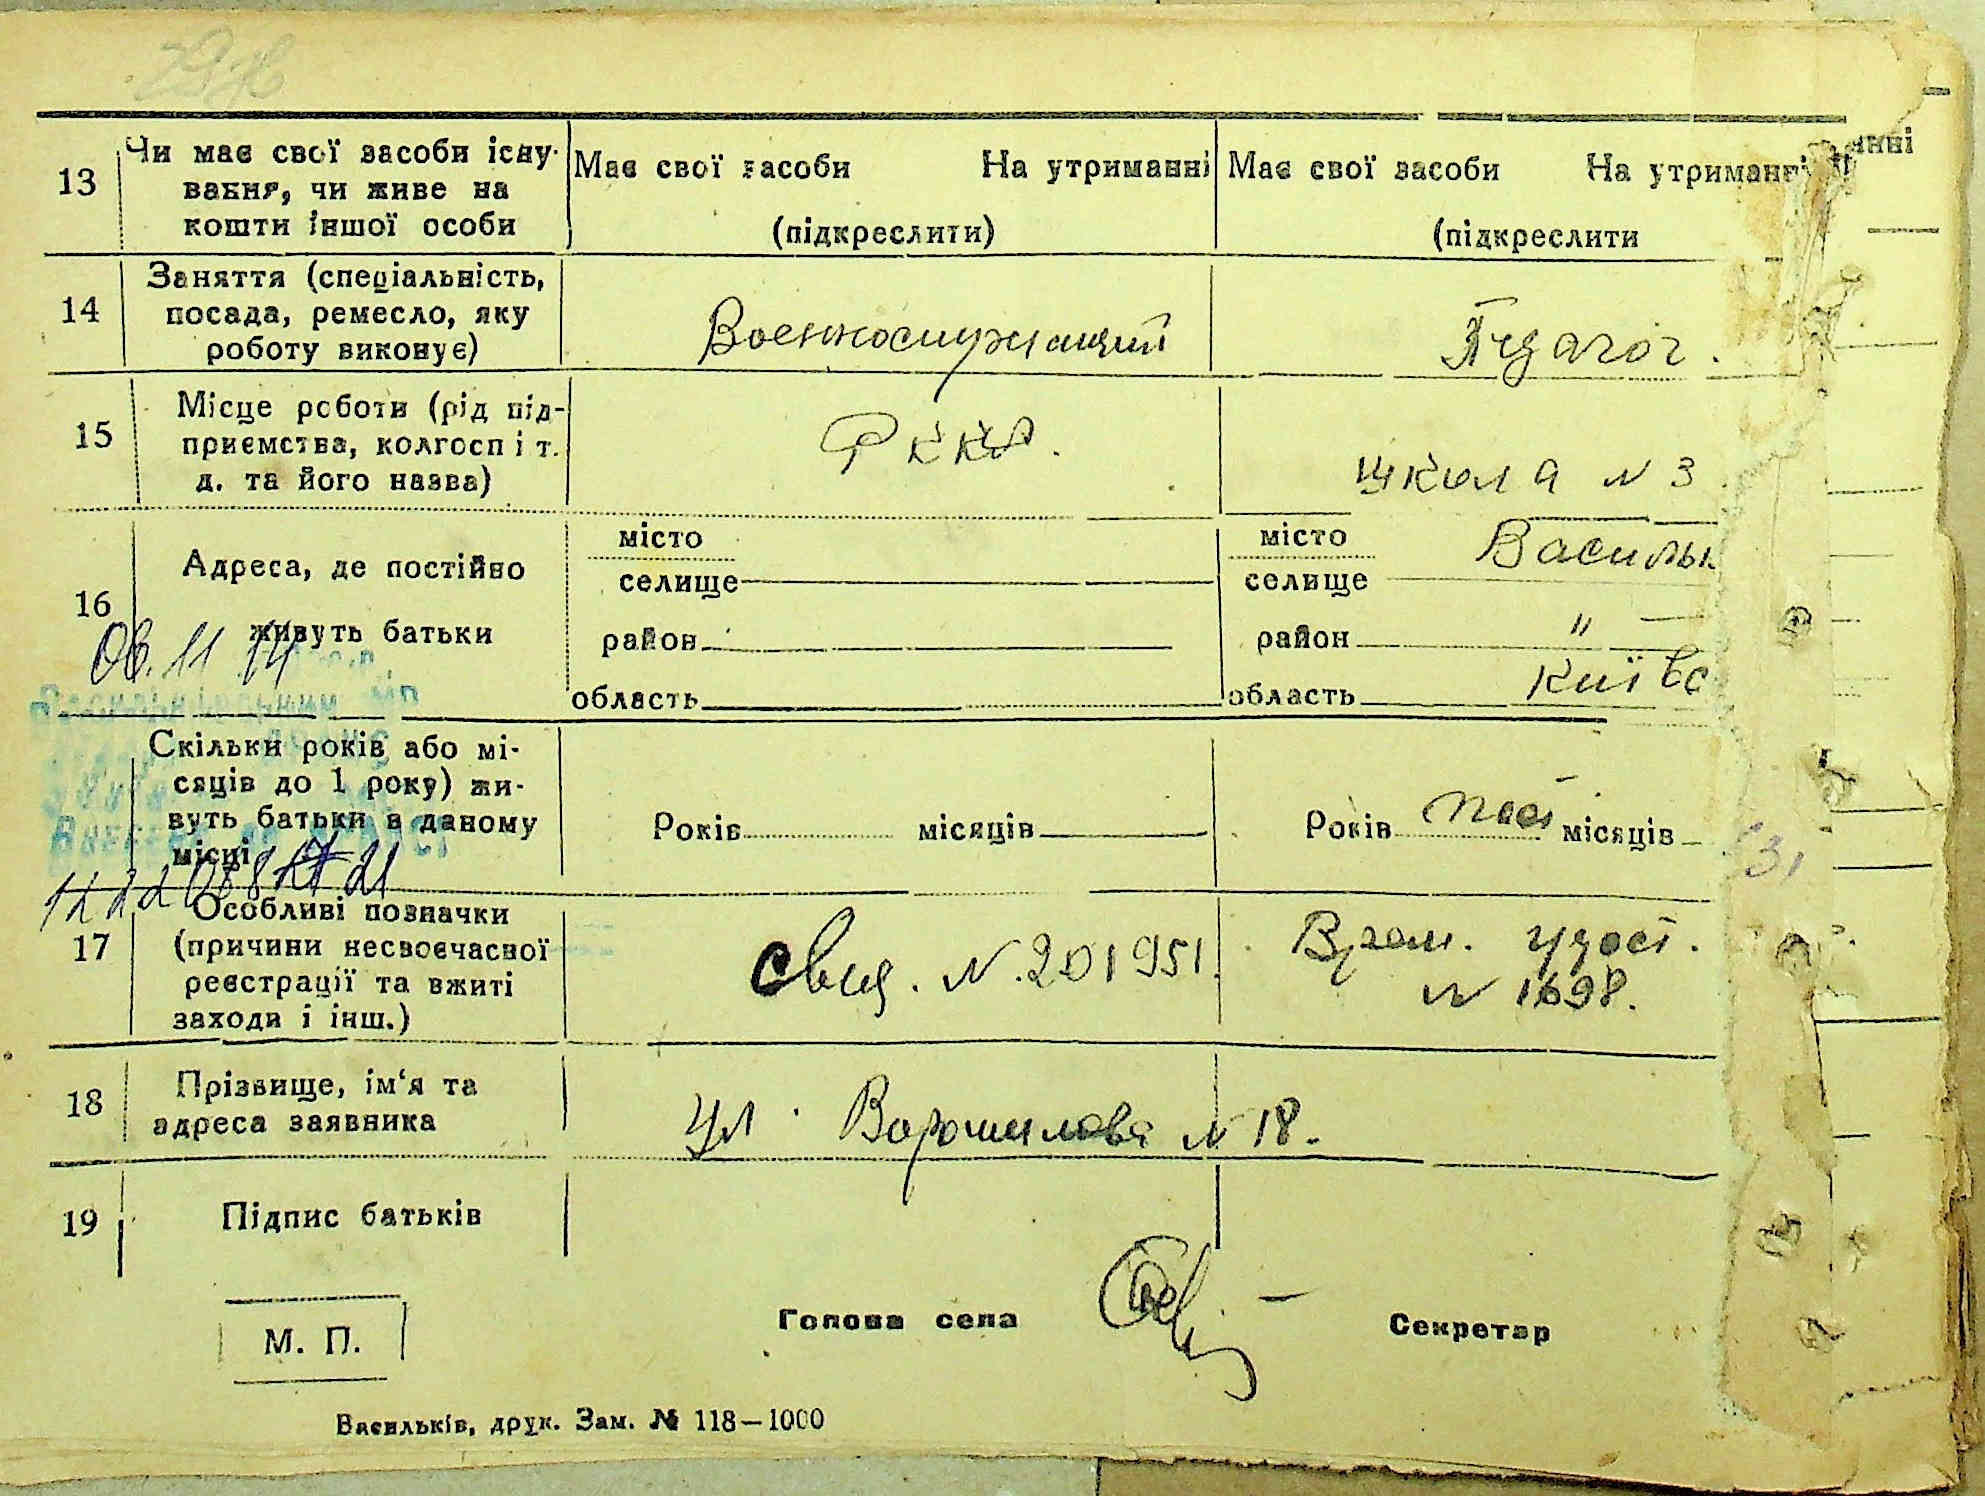 13
Чи має свої засоби існу-
вання, чи живе на
кошти іншої особи
Має свої засоби На утриманні
(підкреслити)
Має свої засоби На утриманні
(підкреслити
анні
14
Заняття (спеціальність,
посада, ремесло, яку
роботу виконує)
Военнослужащий
Педагог.
15
Місце роботи (рід під-
приємства, колгосп і т.
д. та його назва)
РККА.
школа N 3
16
Адреса, де постійно
живуть батьки
місто
селище
район
область
місто
селище
Васильк
район "
область Київс
06.11 14
Скільки років або мі-
сяців до 1 року) жи-
вуть батьки в даному
місці
Років місяців
Років пост місяців
17
Особливі позначки
(причини несвоєчасної
реєстрації та вжиті
заходи і інш.)
Свид. N. 201951.
Врем. удост.
N 1698.
18
Прізвище, ім'я та
адреса заявника
ул. Ворошилова N 18.
19
Підпис батьків
М. П.
Голова села
Секретар
Васильків, друк. Зам. № 118—1000